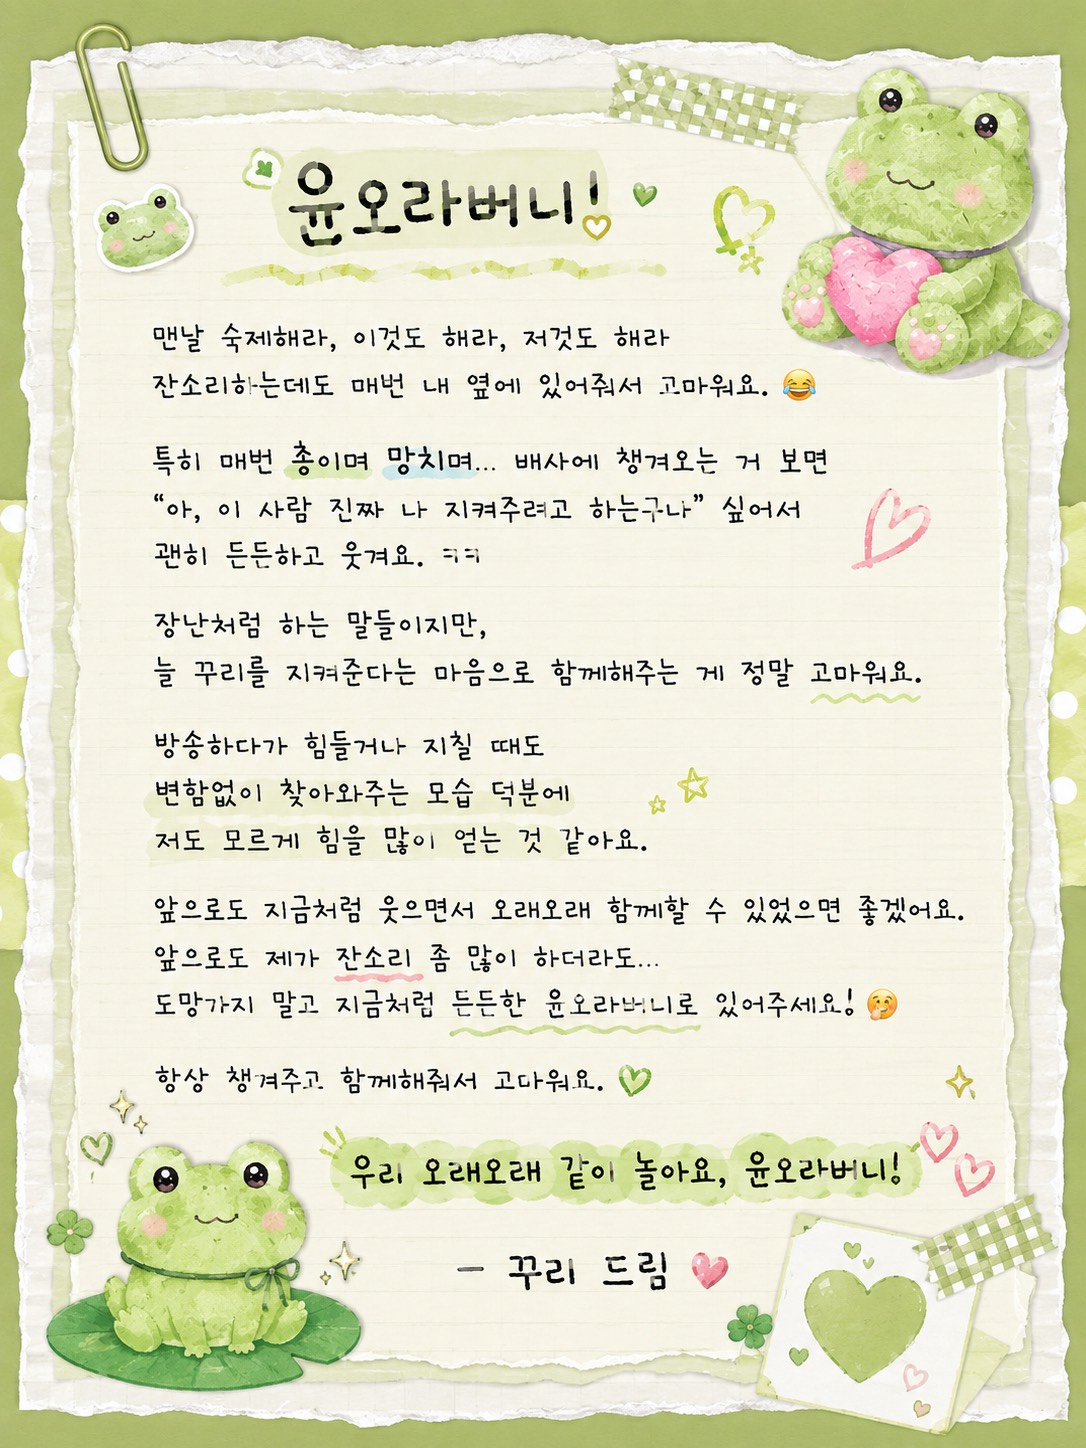 윤오라버니!
맨날 숙제해라, 이것도 해라, 저것도 해라
잔소리하는데도 매번 내 옆에 있어줘서 고마워요. 😂
특히 매번 총이며 망치며... 배사에 챙겨오는 거 보면
“아, 이 사람 진짜 나 지켜주려고 하는구나” 싶어서
괜히 든든하고 웃겨요. ㅋㅋ
장난처럼 하는 말들이지만,
늘 꾸리를 지켜준다는 마음으로 함께해주는 게 정말 고마워요.
방송하다가 힘들거나 지칠 때도
변함없이 찾아와주는 모습 덕분에
저도 모르게 힘을 많이 얻는 것 같아요.
앞으로도 지금처럼 웃으면서 오래오래 함께할 수 있었으면 좋겠어요.
앞으로도 제가 잔소리 좀 많이 하더라도...
도망가지 말고 지금처럼 든든한 윤오라버니로 있어주세요! 🤭
항상 챙겨주고 함께해줘서 고마워요. 💚
우리 오래오래 같이 놀아요, 윤오라버니!
- 꾸리 드림 💗